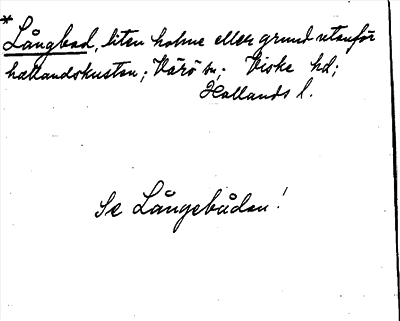 * Långbad, liten holme eller grund utanför
hallandskusten; Värö sn; Viske hd;
Hallands l.
Se Långebåden!